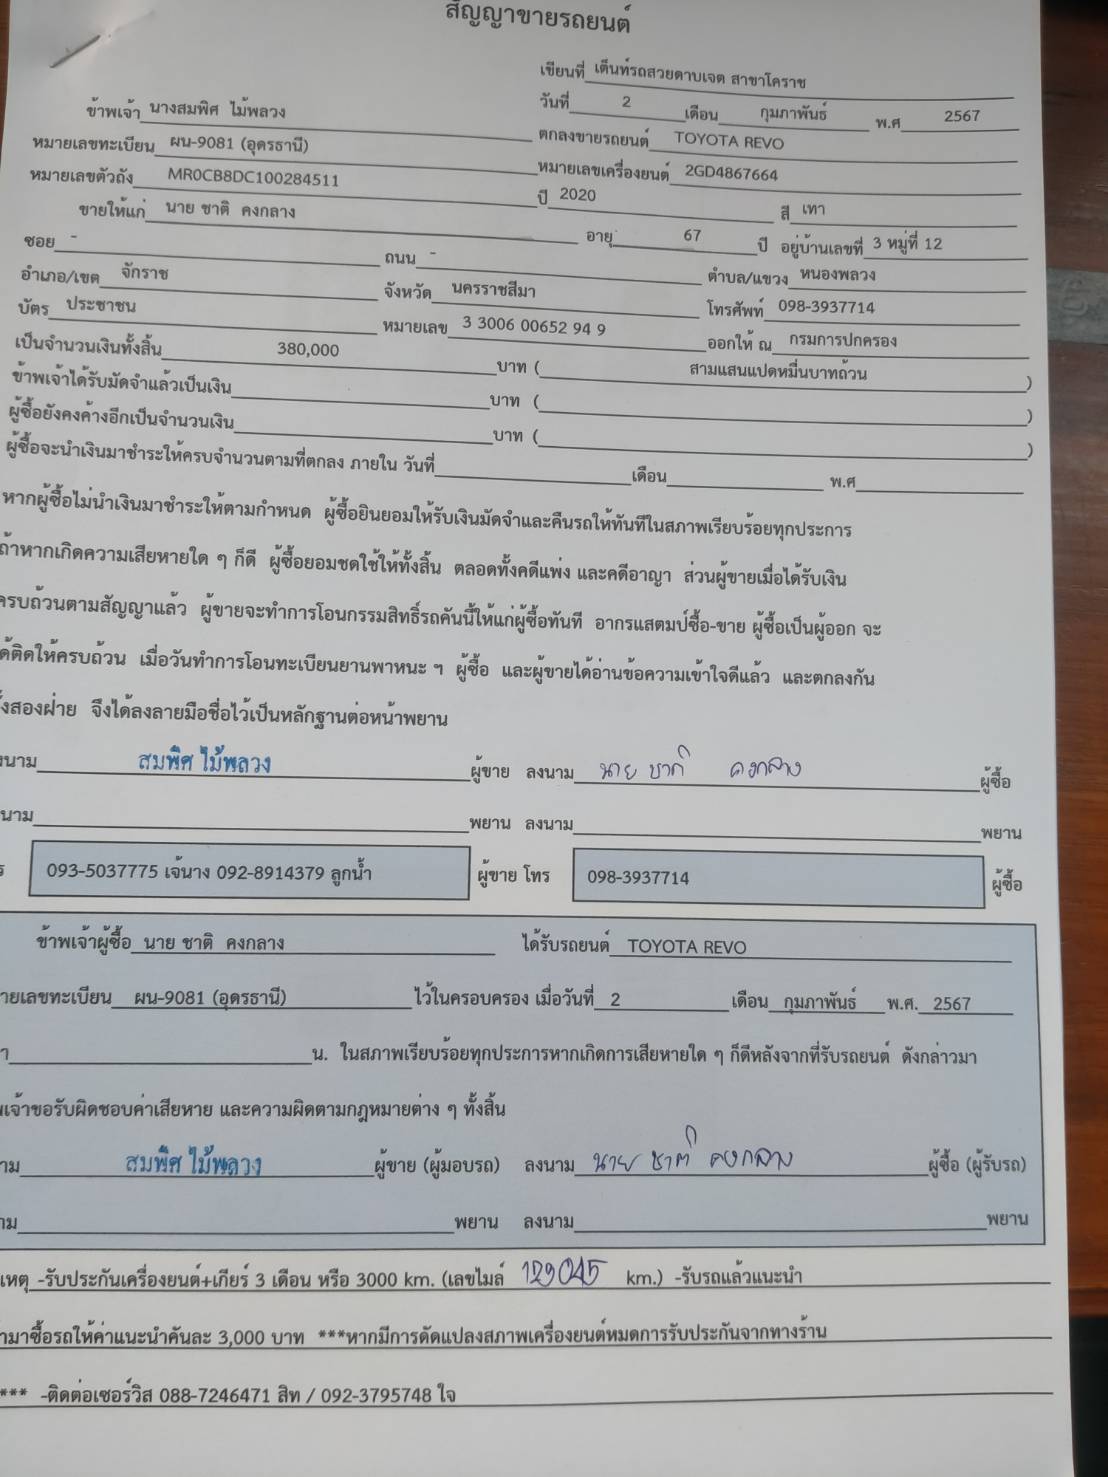 สัญญาขายรถยนต์
เขียนที่ เต็นท์รถสวยดาบเจต สาขาโคราช
วันที่ 2 เดือน กุมภาพันธ์ พ.ศ 2567
ข้าพเจ้า นางสมพิศ ไม้พลวง ตกลงขายรถยนต์ TOYOTA REVO
หมายเลขทะเบียน ผน-9081 (อุดรธานี) หมายเลขเครื่องยนต์ 2GD4867664
หมายเลขตัวถัง MR0CB8DC100284511 ปี 2020 สี เทา
ขายให้แก่ นาย ชาติ คงกลาง อายุ 67 ปี อยู่บ้านเลขที่ 3 หมู่ที่ 12
ซอย - ถนน - ตำบล/แขวง หนองพลวง
อำเภอ/เขต จักราช จังหวัด นครราชสีมา โทรศัพท์ 098-3937714
บัตร ประชาชน หมายเลข 3 3006 00652 94 9 ออกให้ ณ กรมการปกครอง
เป็นจำนวนเงินทั้งสิ้น 380,000 บาท ( สามแสนแปดหมื่นบาทถ้วน )
ข้าพเจ้าได้รับมัดจำแล้วเป็นเงิน บาท ( )
ผู้ซื้อยังคงค้างอีกเป็นจำนวนเงิน บาท ( )
ผู้ซื้อจะนำเงินมาชำระให้ครบจำนวนตามที่ตกลง ภายใน วันที่ เดือน พ.ศ
หากผู้ซื้อไม่นำเงินมาชำระให้ตามกำหนด ผู้ซื้อยินยอมให้รับเงินมัดจำและคืนรถให้ทันทีในสภาพเรียบร้อยทุกประการ
ถ้าหากเกิดความเสียหายใด ๆ ก็ดี ผู้ซื้อยอมชดใช้ให้ทั้งสิ้น ตลอดทั้งคดีแพ่ง และคดีอาญา ส่วนผู้ขายเมื่อได้รับเงิน
ครบถ้วนตามสัญญาแล้ว ผู้ขายจะทำการโอนกรรมสิทธิ์รถคันนี้ให้แก่ผู้ซื้อทันที อากรแสตมป์ซื้อ-ขาย ผู้ซื้อเป็นผู้ออก จะ
ด้ติดให้ครบถ้วน เมื่อวันทำการโอนทะเบียนยานพาหนะ ฯ ผู้ซื้อ และผู้ขายได้อ่านข้อความเข้าใจดีแล้ว และตกลงกัน
ั้งสองฝ่าย จึงได้ลงลายมือชื่อไว้เป็นหลักฐานต่อหน้าพยาน
งนาม สมพิศ ไม้พลวง ผู้ขาย ลงนาม นาย ชาติ คงกลาง ผู้ซื้อ
นาม พยาน ลงนาม พยาน
ร 093-5037775 เจ้นาง 092-8914379 ลูกน้ำ ผู้ขาย โทร 098-3937714 ผู้ซื้อ
ข้าพเจ้าผู้ซื้อ นาย ชาติ คงกลาง ได้รับรถยนต์ TOYOTA REVO
ายเลขทะเบียน ผน-9081 (อุดรธานี) ไว้ในครอบครอง เมื่อวันที่ 2 เดือน กุมภาพันธ์ พ.ศ. 2567
า น. ในสภาพเรียบร้อยทุกประการหากเกิดการเสียหายใด ๆ ก็ดีหลังจากที่รับรถยนต์ ดังกล่าวมา
เจ้าขอรับผิดชอบค่าเสียหาย และความผิดตามกฎหมายต่าง ๆ ทั้งสิ้น
าม สมพิศ ไม้พลวง ผู้ขาย (ผู้มอบรถ) ลงนาม นาย ชาติ คงกลาง ผู้ซื้อ (ผู้รับรถ)
าม พยาน ลงนาม พยาน
เหตุ -รับประกันเครื่องยนต์+เกียร์ 3 เดือน หรือ 3000 km. (เลขไมล์ 129045 km.) -รับรถแล้วแนะนำ
ามาซื้อรถให้ค่าแนะนำคันละ 3,000 บาท ***หากมีการดัดแปลงสภาพเครื่องยนต์หมดการรับประกันจากทางร้าน
*** -ติดต่อเซอร์วิส 088-7246471 สิท / 092-3795748 ใจ